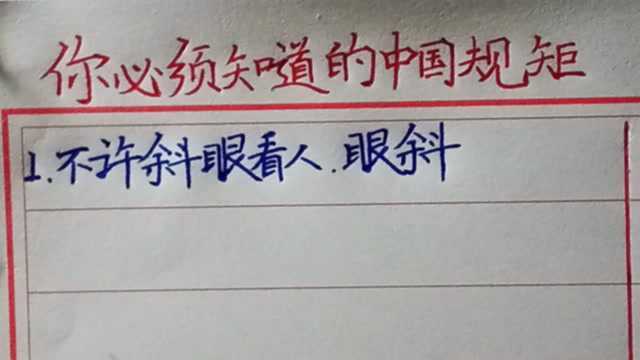 你必须知道的中国规矩
1.不许斜眼看人.眼斜